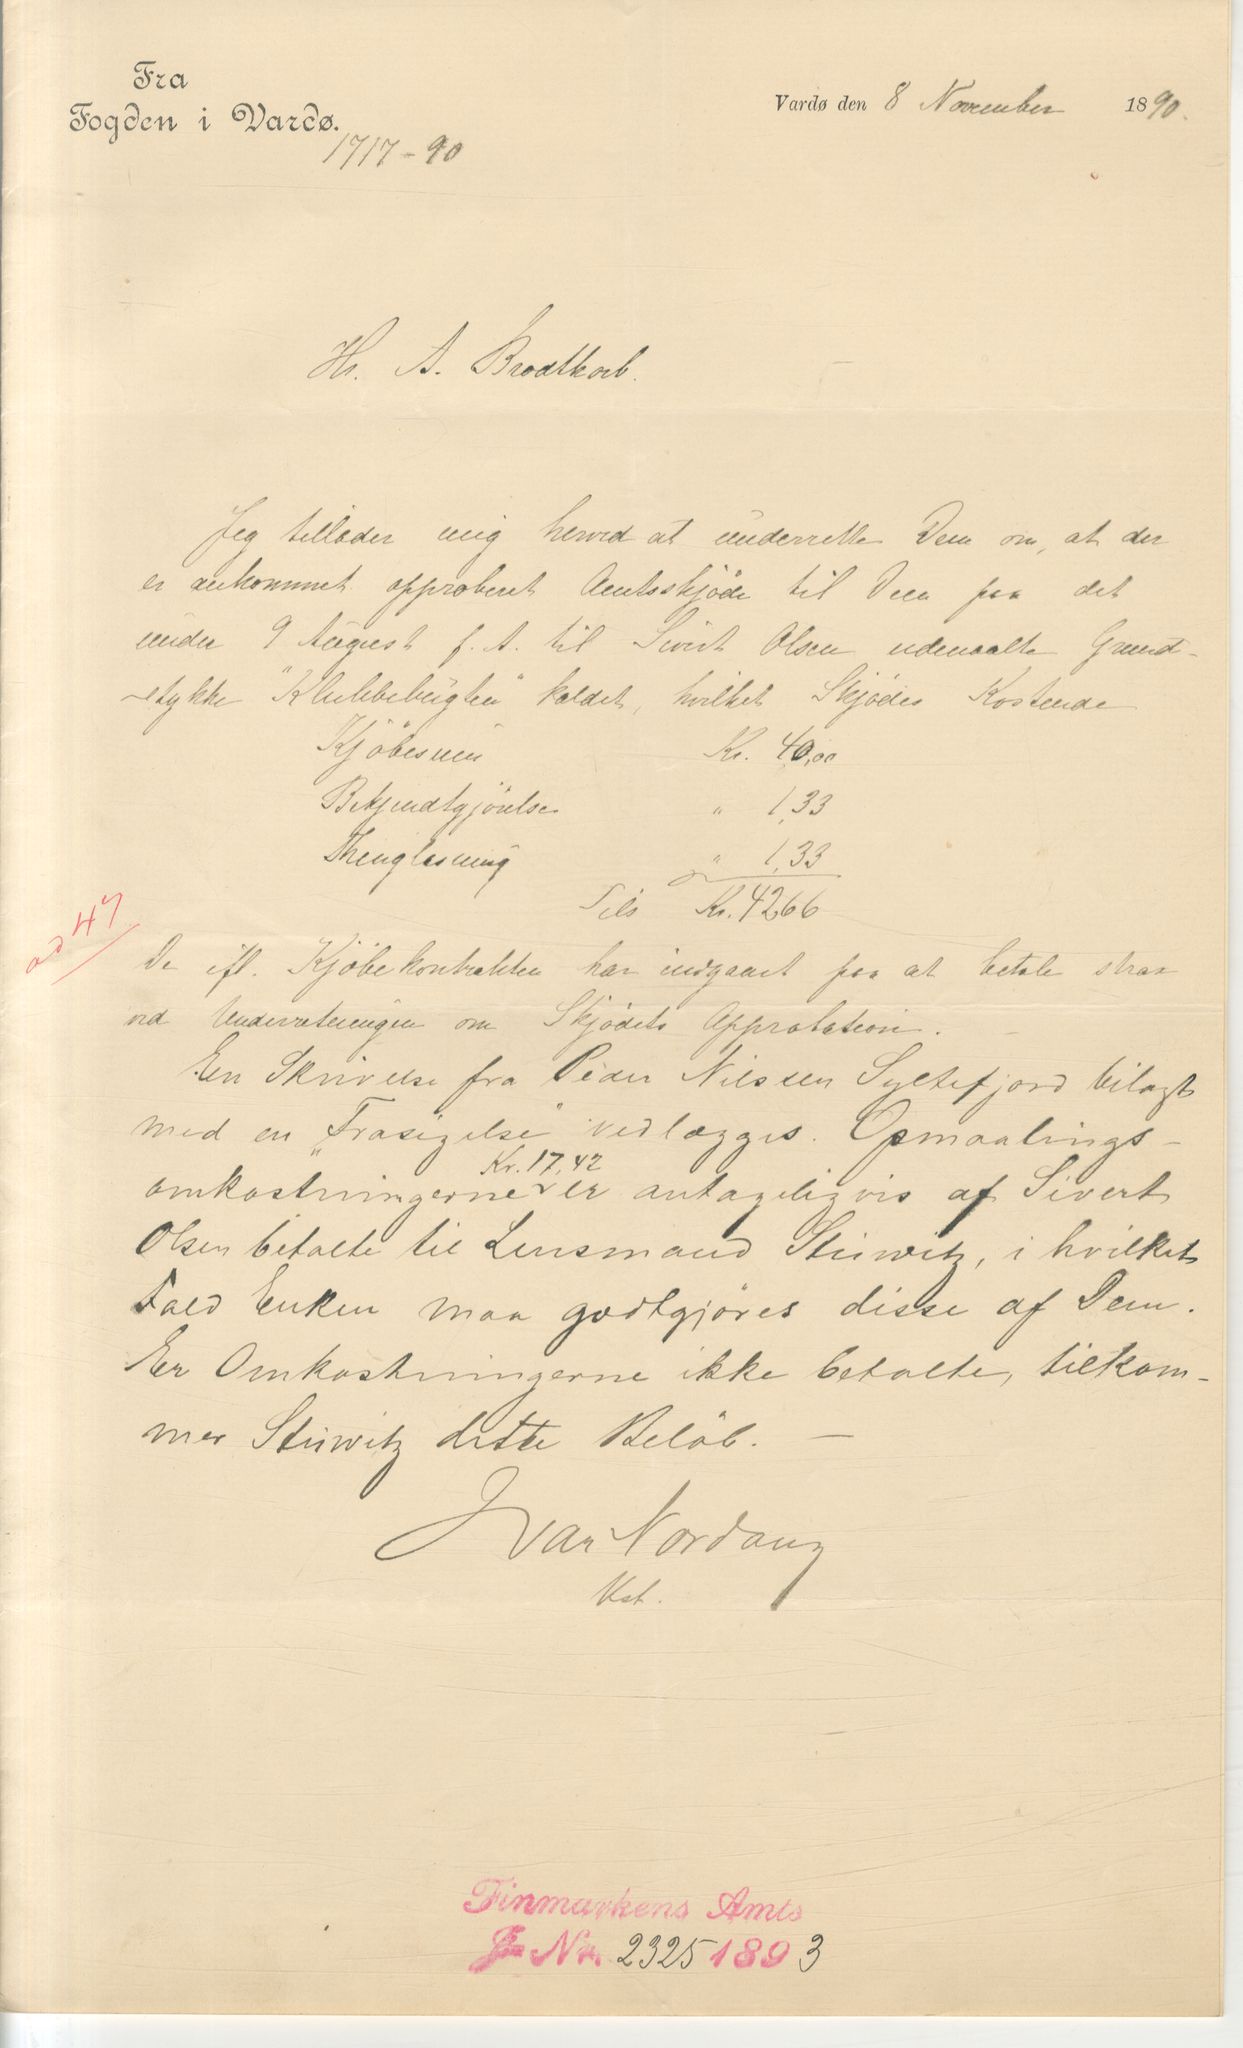 Fra
Fogden i Vardø.
1717-90
Vardø den 8 November 1890.
Hr. A. Brodtkorb.
Jeg tillader mig herved at underrette Dem om, at der
er ankommet approberet Amtsskjöde til Dem paa det
under 9 August f. A. til Sivert Olsen udmaalte Grund-
stykke "Klubbebugten" kaldet, hvilket Skjödes Kostende
Kjöbesum Kr. 40,00
Bekjendtgjörelse " 1,33
Thinglæsning " 1,33
Tils Kr. 4266
ad 47
De ifl. Kjöbekontrakten har indgaaet paa at betale strax
ved Underretningen om Skjödets Approbation.
En Skrivelse fra Peder Nilssen Syltefjord bilagt
med en „Frasigelse" vedlægges. Opmaalings-
Kr. 17,42
omkostningerne er antageligvis af Sivert
Olsen betalte til Lensmand Stüwitz, i hvilket
Fald Enken maa godtgjöres disse af Dem.
Er Omkostningerne ikke betalte, tilkom-
mer Stüwitz dette Belöb. —
Ivar Nordang
Kst.
Finmarkens Amts
J-Nr. 2325 1893